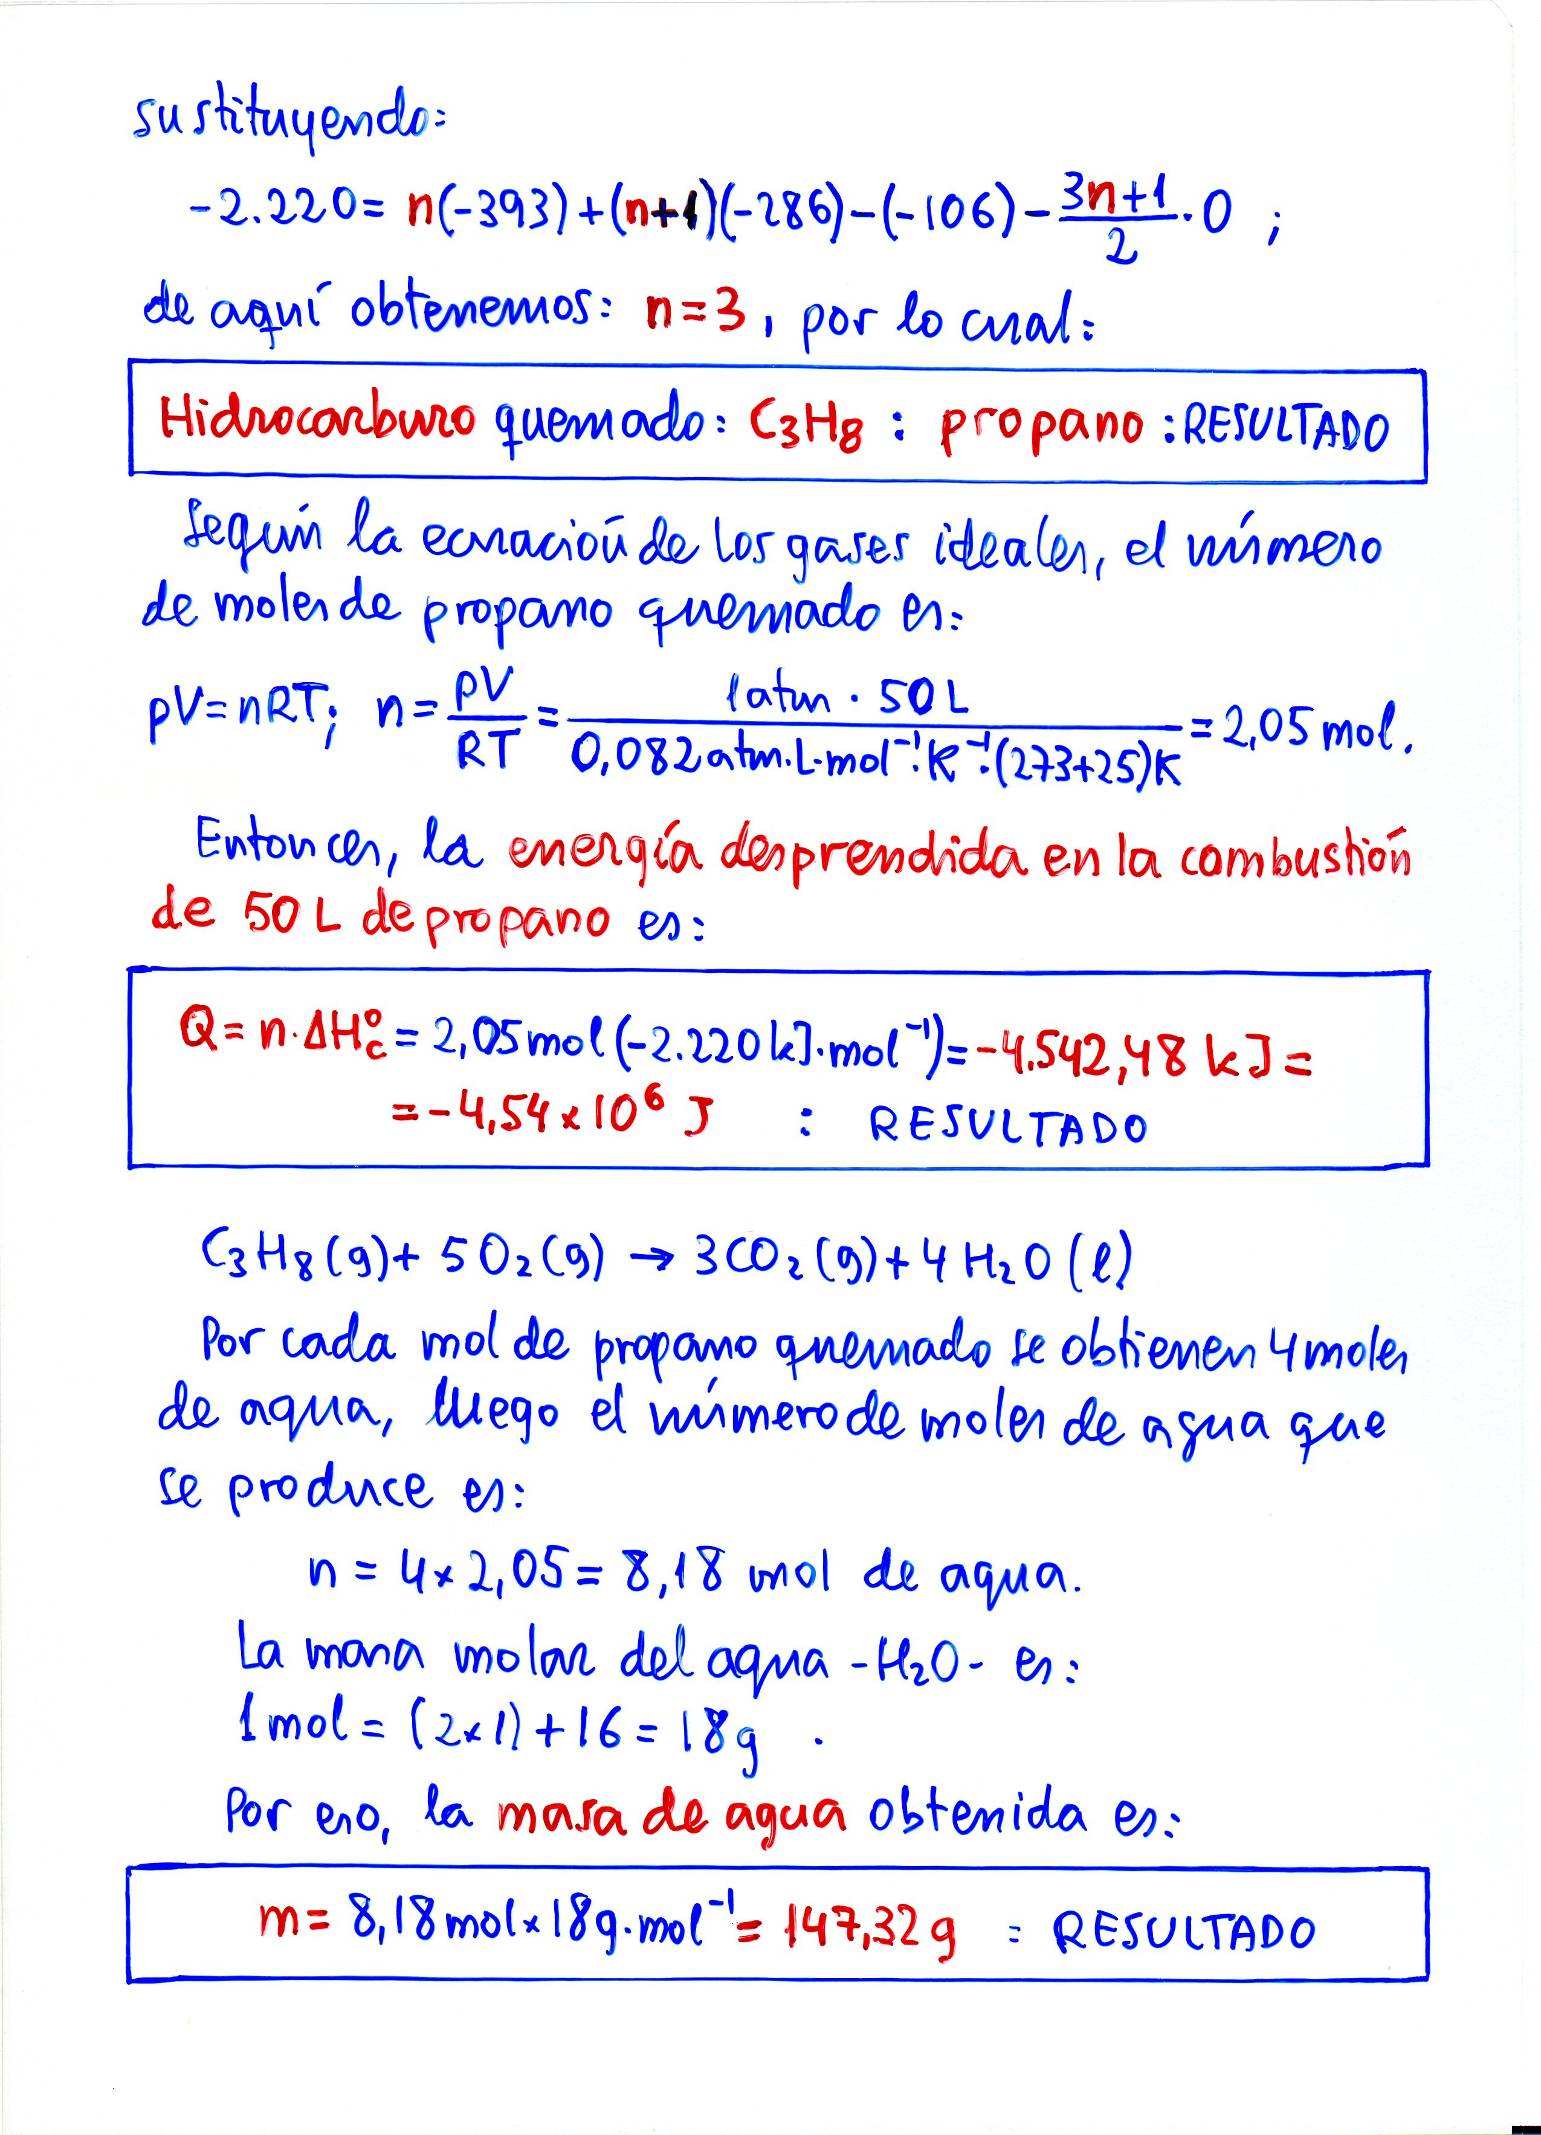 sustituyendo:
-2.220 = n(-393) + (n+1)(-286) - (-106) - \frac{3n+1}{2} · 0 ;
de aquí obtenemos: n=3, por lo cual:
Hidrocarburo quemado: C₃H₈ : propano : RESULTADO
Según la ecuación de los gases ideales, el número
de moles de propano quemado es:
pV = nRT; n = \frac{pV}{RT} = \frac{1 atm · 50 L}{0,082 atm·L·mol⁻¹·K⁻¹·(273+25)K} = 2,05 mol.
Entonces, la energía desprendida en la combustión
de 50 L de propano es:
Q = n·ΔH°c = 2,05 mol (-2.220 kJ·mol⁻¹) = -4.542,48 kJ =
= -4,54 x 10⁶ J : RESULTADO
C₃H₈(g) + 5 O₂(g) → 3 CO₂(g) + 4 H₂O (l)
Por cada mol de propano quemado se obtienen 4 moles
de agua, luego el número de moles de agua que
se produce es:
n = 4 x 2,05 = 8,18 mol de agua.
La masa molar del agua -H₂O- es:
1 mol = (2x1) + 16 = 18 g .
Por eso, la masa de agua obtenida es:
m = 8,18 mol x 18 g·mol⁻¹ = 147,32 g : RESULTADO